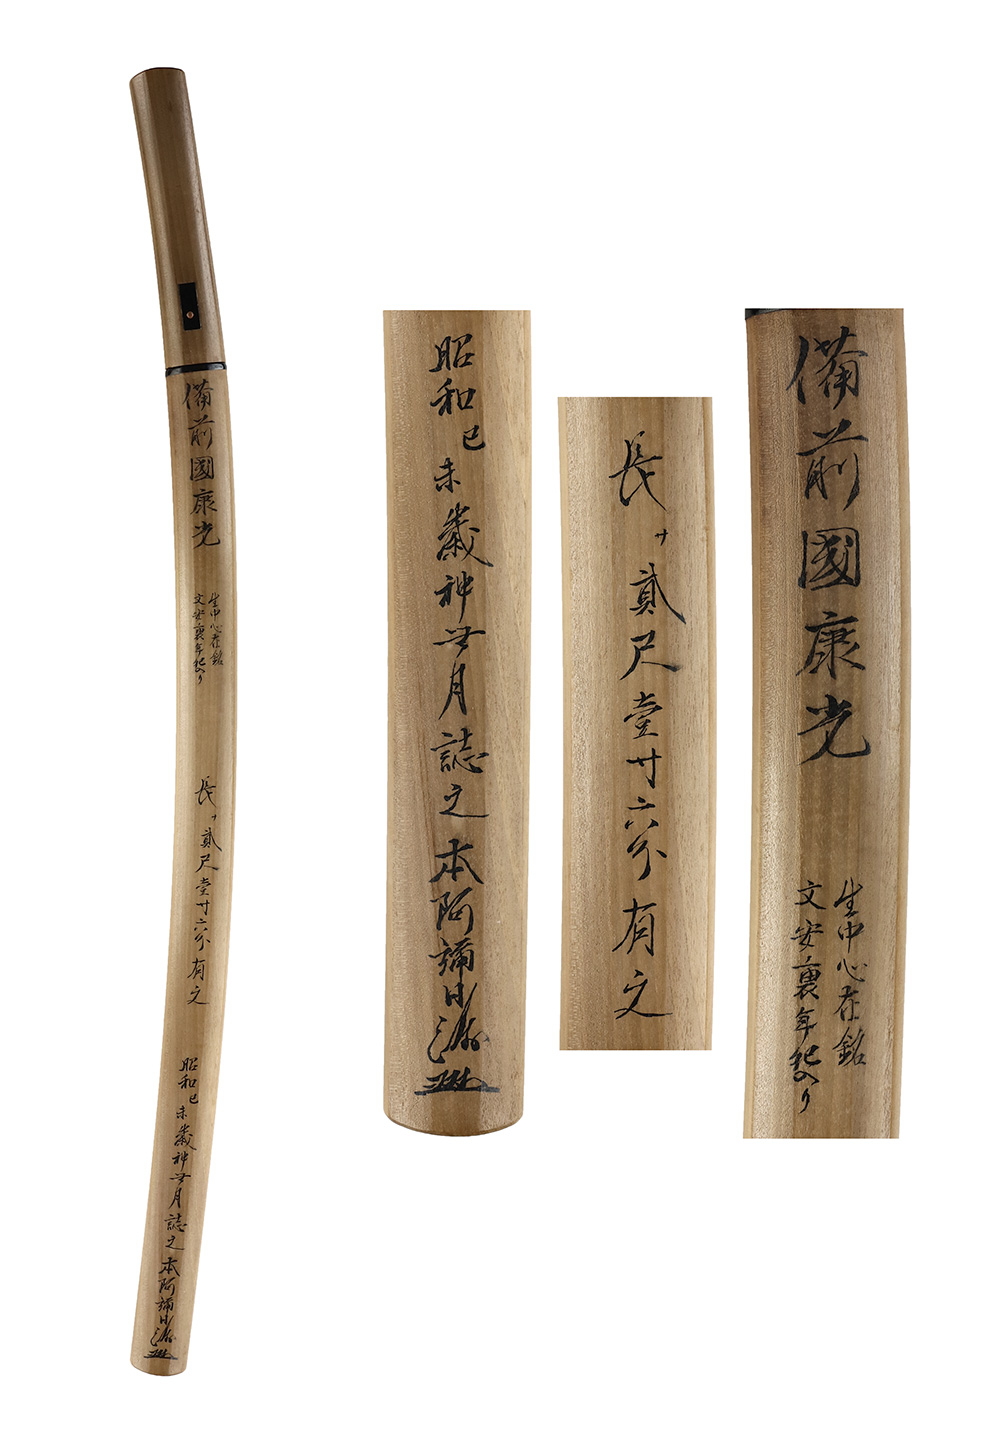 備前國康光
生中心在銘
文安裏年紀入り
長サ貳尺壹寸六分有之
昭和己未歳神無月誌之本阿彌日洲
備前國康光
生中心在銘
文安裏年紀入り
長サ貳尺壹寸六分有之
昭和己未歳神無月誌之本阿彌日洲